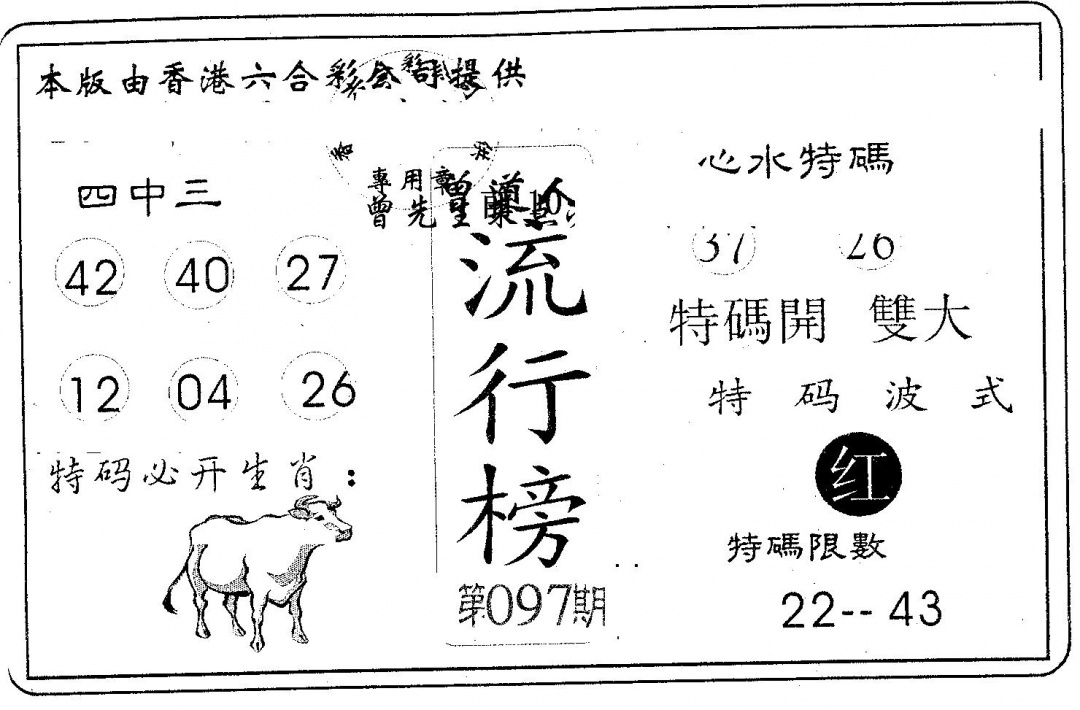 本版由香港六合彩公司提供
四中三
42 40 27
12 04 26
特码必开生肖：
專用章
曾先生
流行榜
第097期
心水特碼
37 26
特碼開 雙大
特码波式
红
特碼限數
22-- 43